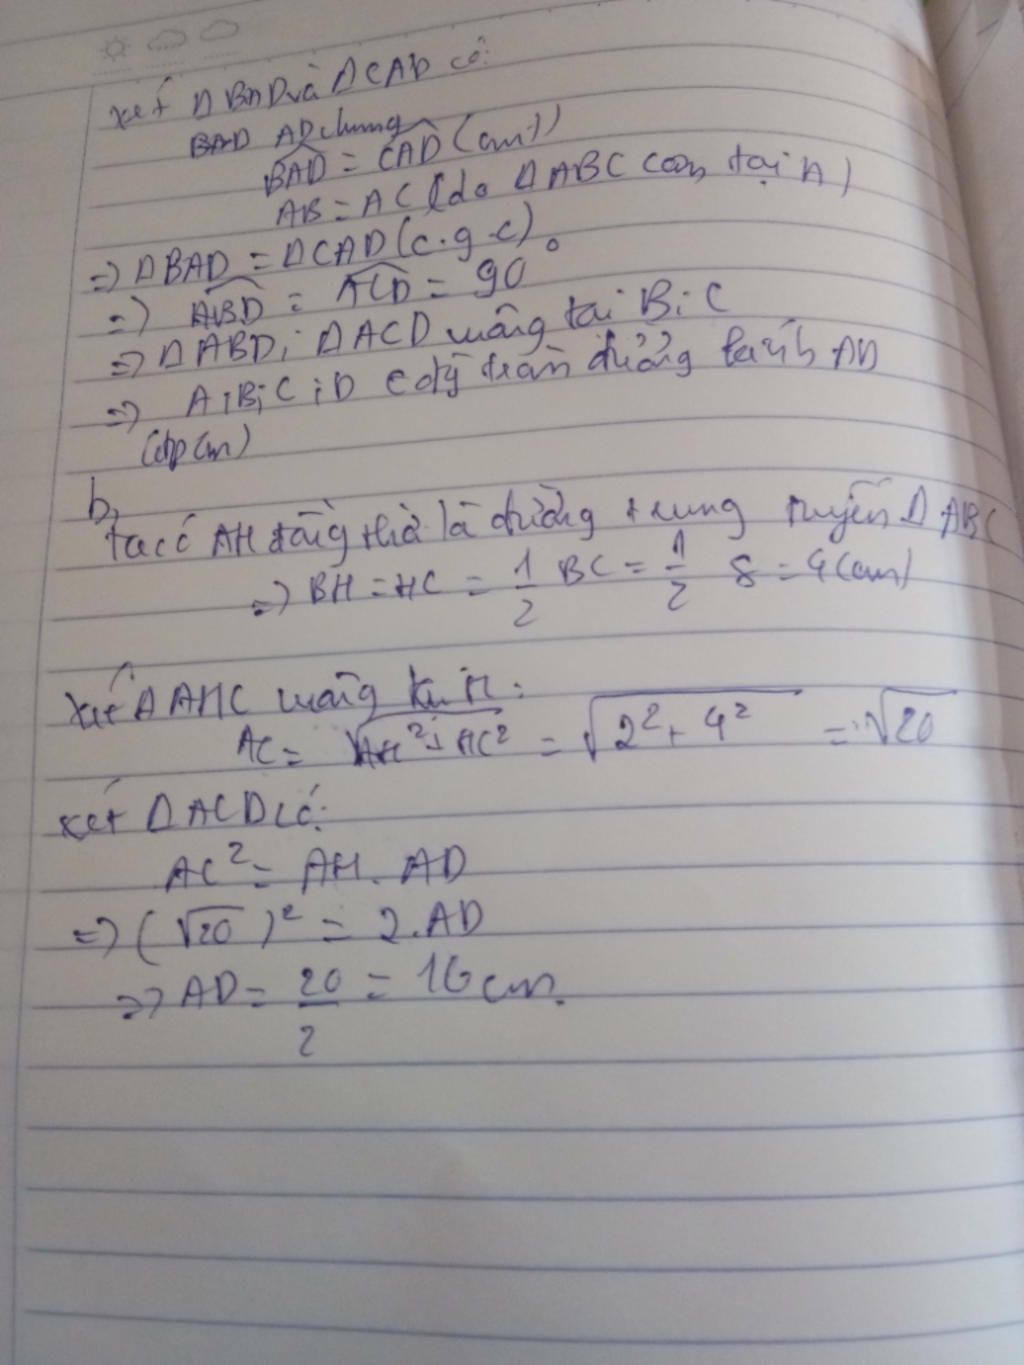 xét Δ BAD và Δ CAD có:
BAD AD chung
BAD = CAD (cmt)
AB = AC (do Δ ABC cân tại A)
=> Δ BAD = Δ CAD (c.g.c)
=> ABD = ACD = 90°
=> Δ ABD; Δ ACD vuông tại B; C
=> A; B; C; D đường kính AD
(đpcm)
b,
ta có AH đồng thời là đường trung tuyến Δ ABC
=> BH = HC = 1/2 BC = 1/2 8 = 4 (cm)
xét Δ AHC vuông tại H:
AC = √AH² + HC² = √2² + 4² = √20
xét Δ ACD có:
AC² = AH. AD
=> (√20)² = 2.AD
=> AD = 20/2 = 10 cm.